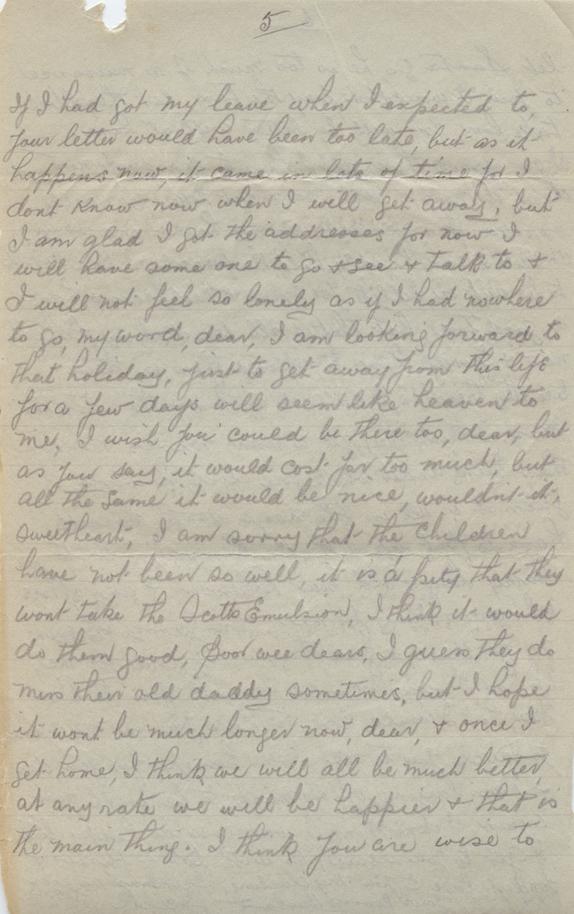 5
If I had got my leave when I expected to,
your letter would have been too late, but as it
happens now, it came in lots of time for I
dont know now when I will get away, but
I am glad I got the addresses for now I
will have some one to go & see & talk to &
I will not feel so lonely as if I had nowhere
to go, my word, dear, I am looking forward to
that holiday, just to get away from this life
for a few days will seem like heaven to
me, I wish you could be there too, dear, but
as you say, it would cost far too much, but
all the same it would be nice, wouldnt it,
sweetheart, I am sorry that the children
have not been so well, it is a pity that they
wont take the Scotts Emulsion, I think it would
do them good, Poor wee dears, I guess they do
miss their old daddy sometimes, but I hope
it wont be much longer now, dear, & once I
get home, I think we will all be much better,
at any rate we will be happier & that is
the main thing. I think you are wise to